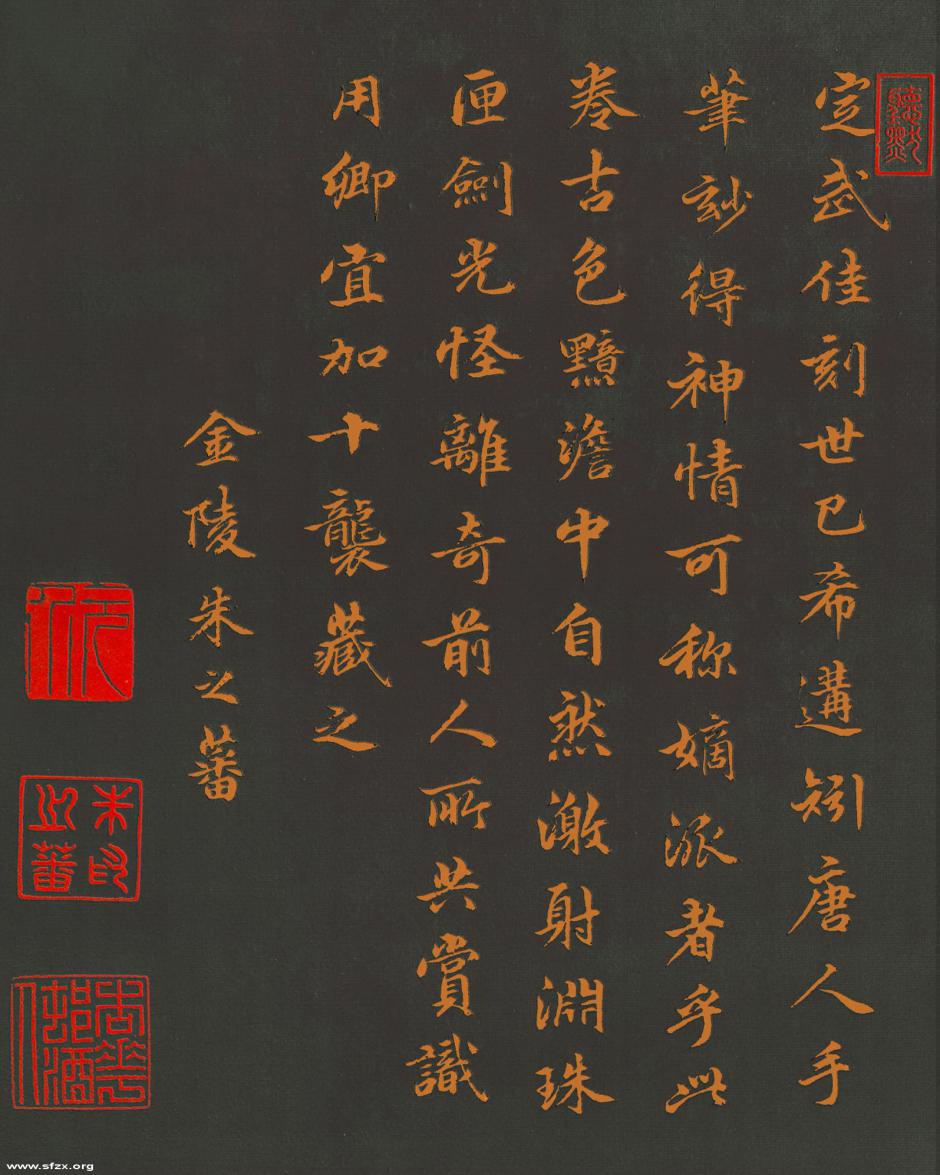 定武佳刻世已希遘矧唐人手
筆玅得神情可称嫡派者乎此
卷古色黯澹中自然激射淵珠
匣劍光怪離奇前人所共賞識
用卿宜加十襲藏之
金陵朱之蕃
朱之蕃印
www.sfzx.org